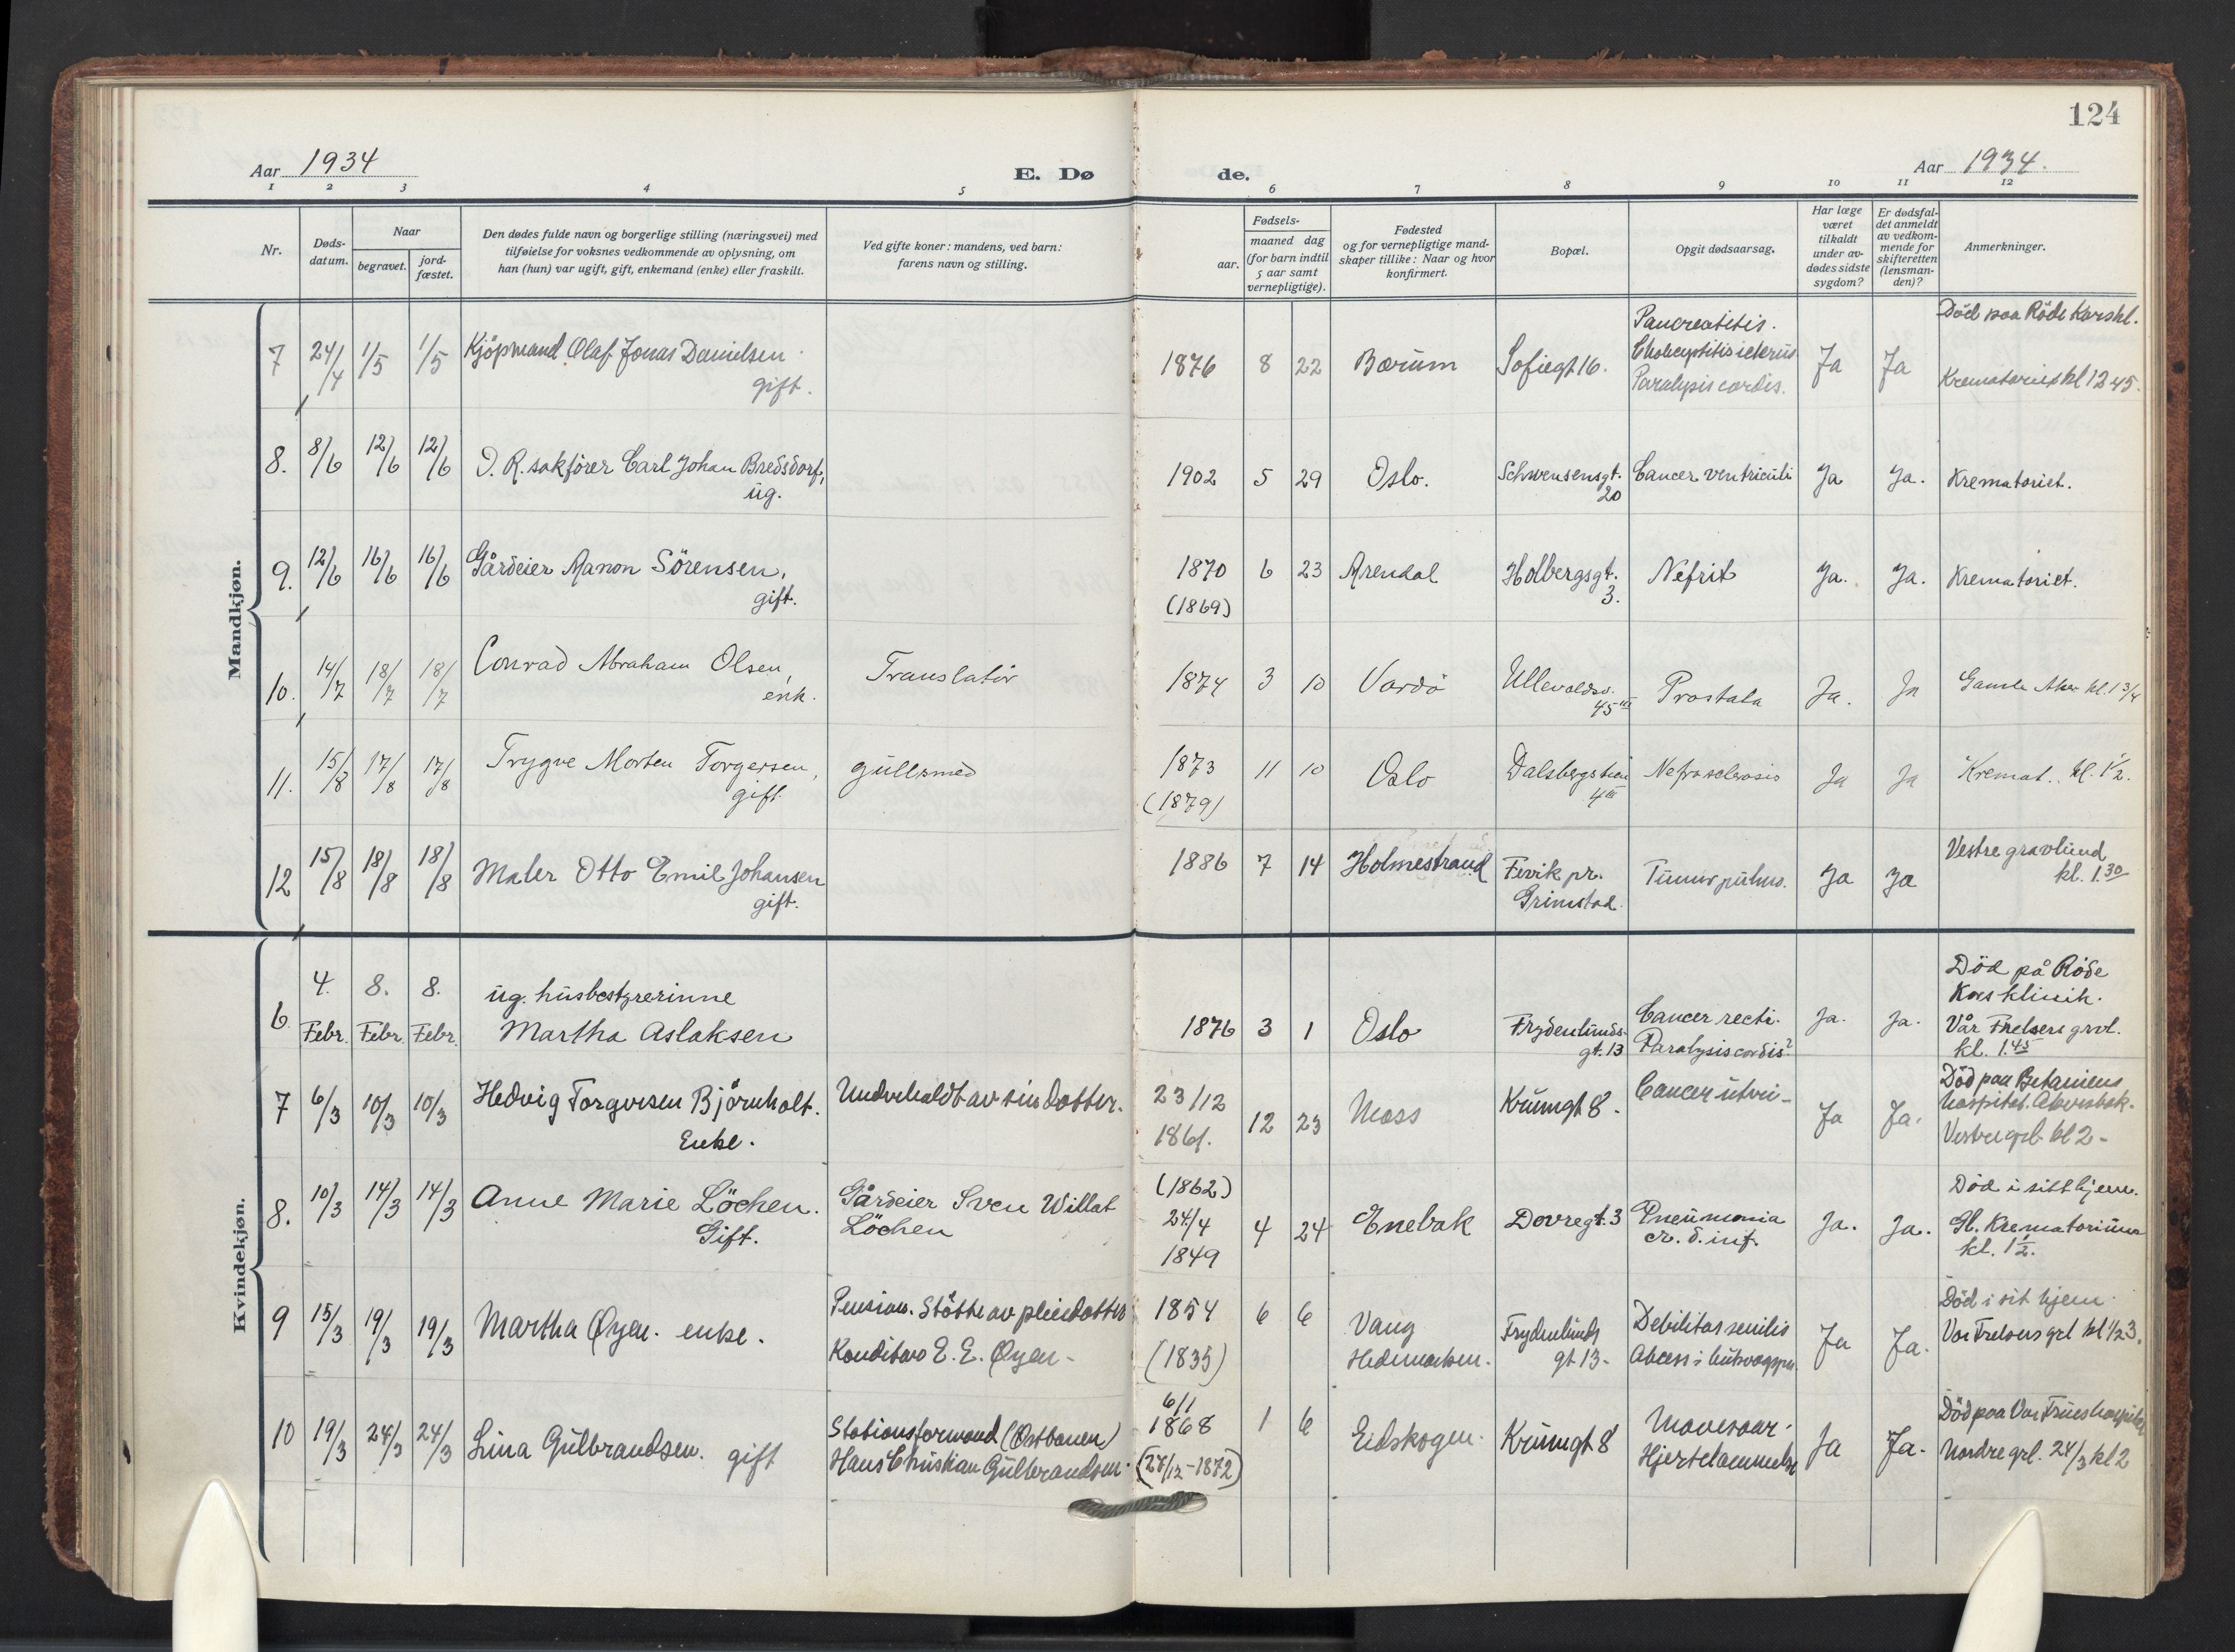 124
Aar 1934
E. Dø
de.
Aar 1934.
1 2 3 4 5 6 7 8 9 10 11 12
Nr.
Døds-
datum.
Naar
begravet.
jord-
fæstet.
Den dødes fulde navn og borgerlige stilling (næringsvei) med
tilføielse for voksnes vedkommende av oplysning, om
han (hun) var ugift, gift, enkemand (enke) eller fraskilt.
Ved gifte koner: mandens, ved barn:
farens navn og stilling.
Fødsels-
aar.
maaned dag
(for barn indtil
5 aar samt
vernepligtige).
Fødested
og for vernepligtige mand-
skaper tillike: Naar og hvor
konfirmert.
Bopæl.
Opgit dødsaarsag.
Har læge
været
tilkaldt
under av-
dødes sidste
sygdom?
Er dødsfal-
det anmeldt
av vedkom-
mende for
skifteretten
(lensman-
den)?
Anmerkninger.
Mandkjøn.
7 24/4 1/5 1/5 Kjöpmand Olaf Jonas Danielsen
gift.
1876 8 22 Bærum Sofiegt 16.
Pancreatitis.
Paralysis cordis.
Ja Ja
Död paa Röde Korskl.
Krematoriet kl 12 45.
8. 8/6 12/6 12/6 O. R. sakfører Carl Johan Bredsdorf,
ug.
1902 5 29 Oslo. Schwensensgt.
20
Cancer ventriculi Ja Ja. Krematoriet.
9. 12/6 16/6 16/6 Gårdeier Manon Sörensen,
gift.
1870 6 23 Arendal Holbergsgt.
3.
(1869)
Nefrit Ja. Ja. Krematoriet.
10. 14/7 18/7 18/7 Conrad Abraham Olsen,
enk.
Translatör
1874 3 10 Vardö Ullevoldsv.
45 III
Prostata Ja. Ja Gamle Aker kl. 1 3/4
11. 15/8 17/8 17/8 Trygve Morten Torgersen,
gift
gullsmed
1873 11 10 Oslo Dalsbergstien
4 III
(1879)
Nefrosclerosis Ja Ja Kremat. kl. 1 1/2.
12 15/8 18/8 18/8 Maler Otto Emil Johansen
gift.
1886 7 14 Holmestrand Fevik pr.
Grimstad.
Tumor pulmo. Ja Ja
Vestre gravlund
kl. 1.30
Kvindekjøn.
6 4. Febr. 8. Febr. 8. Febr. ug. husbestyrerinne
Martha Aslaksen
1876 3 1 Oslo Frydenlunds-
gt. 13
Cancer recti.
Paralysis cordis?
Ja. Ja.
Död på Röde
Kors klinik.
Vår Frelsers grvl.
kl. 1.45
7 6/3 10/3 10/3 Hedvig Torgersen Björnholt.
Enke.
Underholdt av sin dotter.
23/12
1861.
12 23 Moss Krumgt 8. Cancer uteri-
Ja Ja.
Död paa Betaniens
hospital. Akersbak.
Vestre grl. kl 2-
8. 10/3 14/3 14/3 Anne Marie Löchen.
Gift.
Gårdeier Sven Willat
Löchen
(1862)
24/4
1849
4 24 Enebak Dovregt. 3 Pneumonia
cr. d. inf.
Ja. Ja.
Död i sitt hjem.
Gl. Krematorium
kl. 1 1/2.
9 15/3 19/3 19/3 Martha Øyen. enke.
Pension. Stötte av pleiedotter
Konditor E. E. Øyen-
1854
(1835)
6 6 Vang
Hedemarken.
Frydenlunds
gt 13-
Debilitas senilis
Ja Ja.
Död i sit hjem.
Vor Frelsers grl kl 1/2 3.
10 19/3 24/3 24/3 Lina Gulbrandsen. gift
Stationsformand (Østbanen)
Hans Christian Gulbrandsen.
6/1
1868
(24/12-1872)
1 6 Eidskogen. Krumgt 8
Mavesaar.
Hjertelammelse
Ja Ja.
Död paa Vor Frues hospital
Nordre grl. 24/3 kl 2